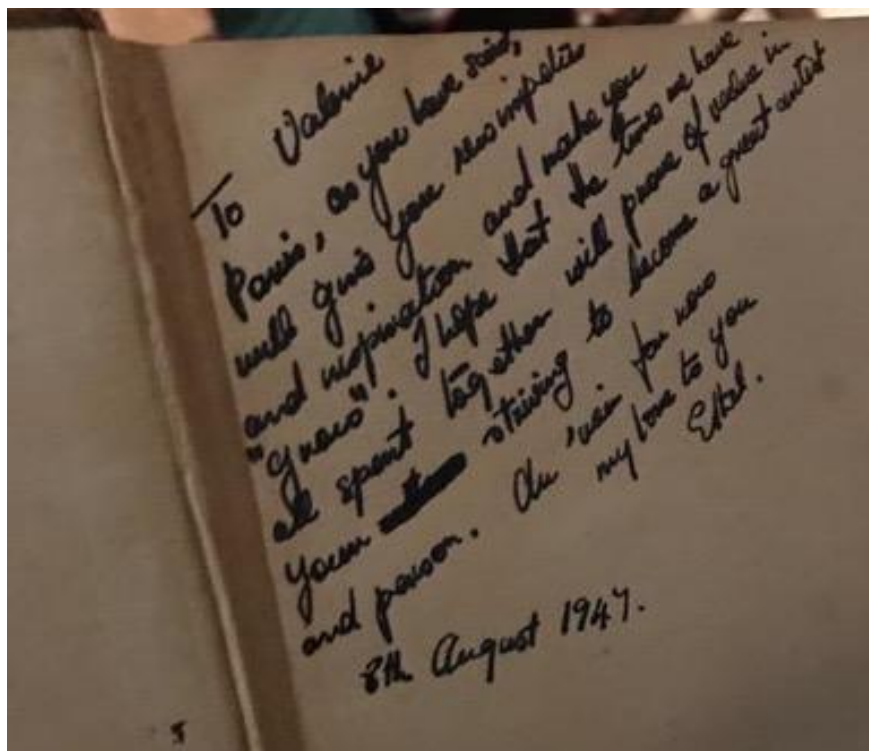 To Valerie
Paris, as you have said,
will give you new impetus
and inspiration and make you
"grow". I hope that the times we have
all spent together will prove of value in
your striving to become a great artist
and person. Au 'voir for now
my love to you
Ethel.
8th August 1947.